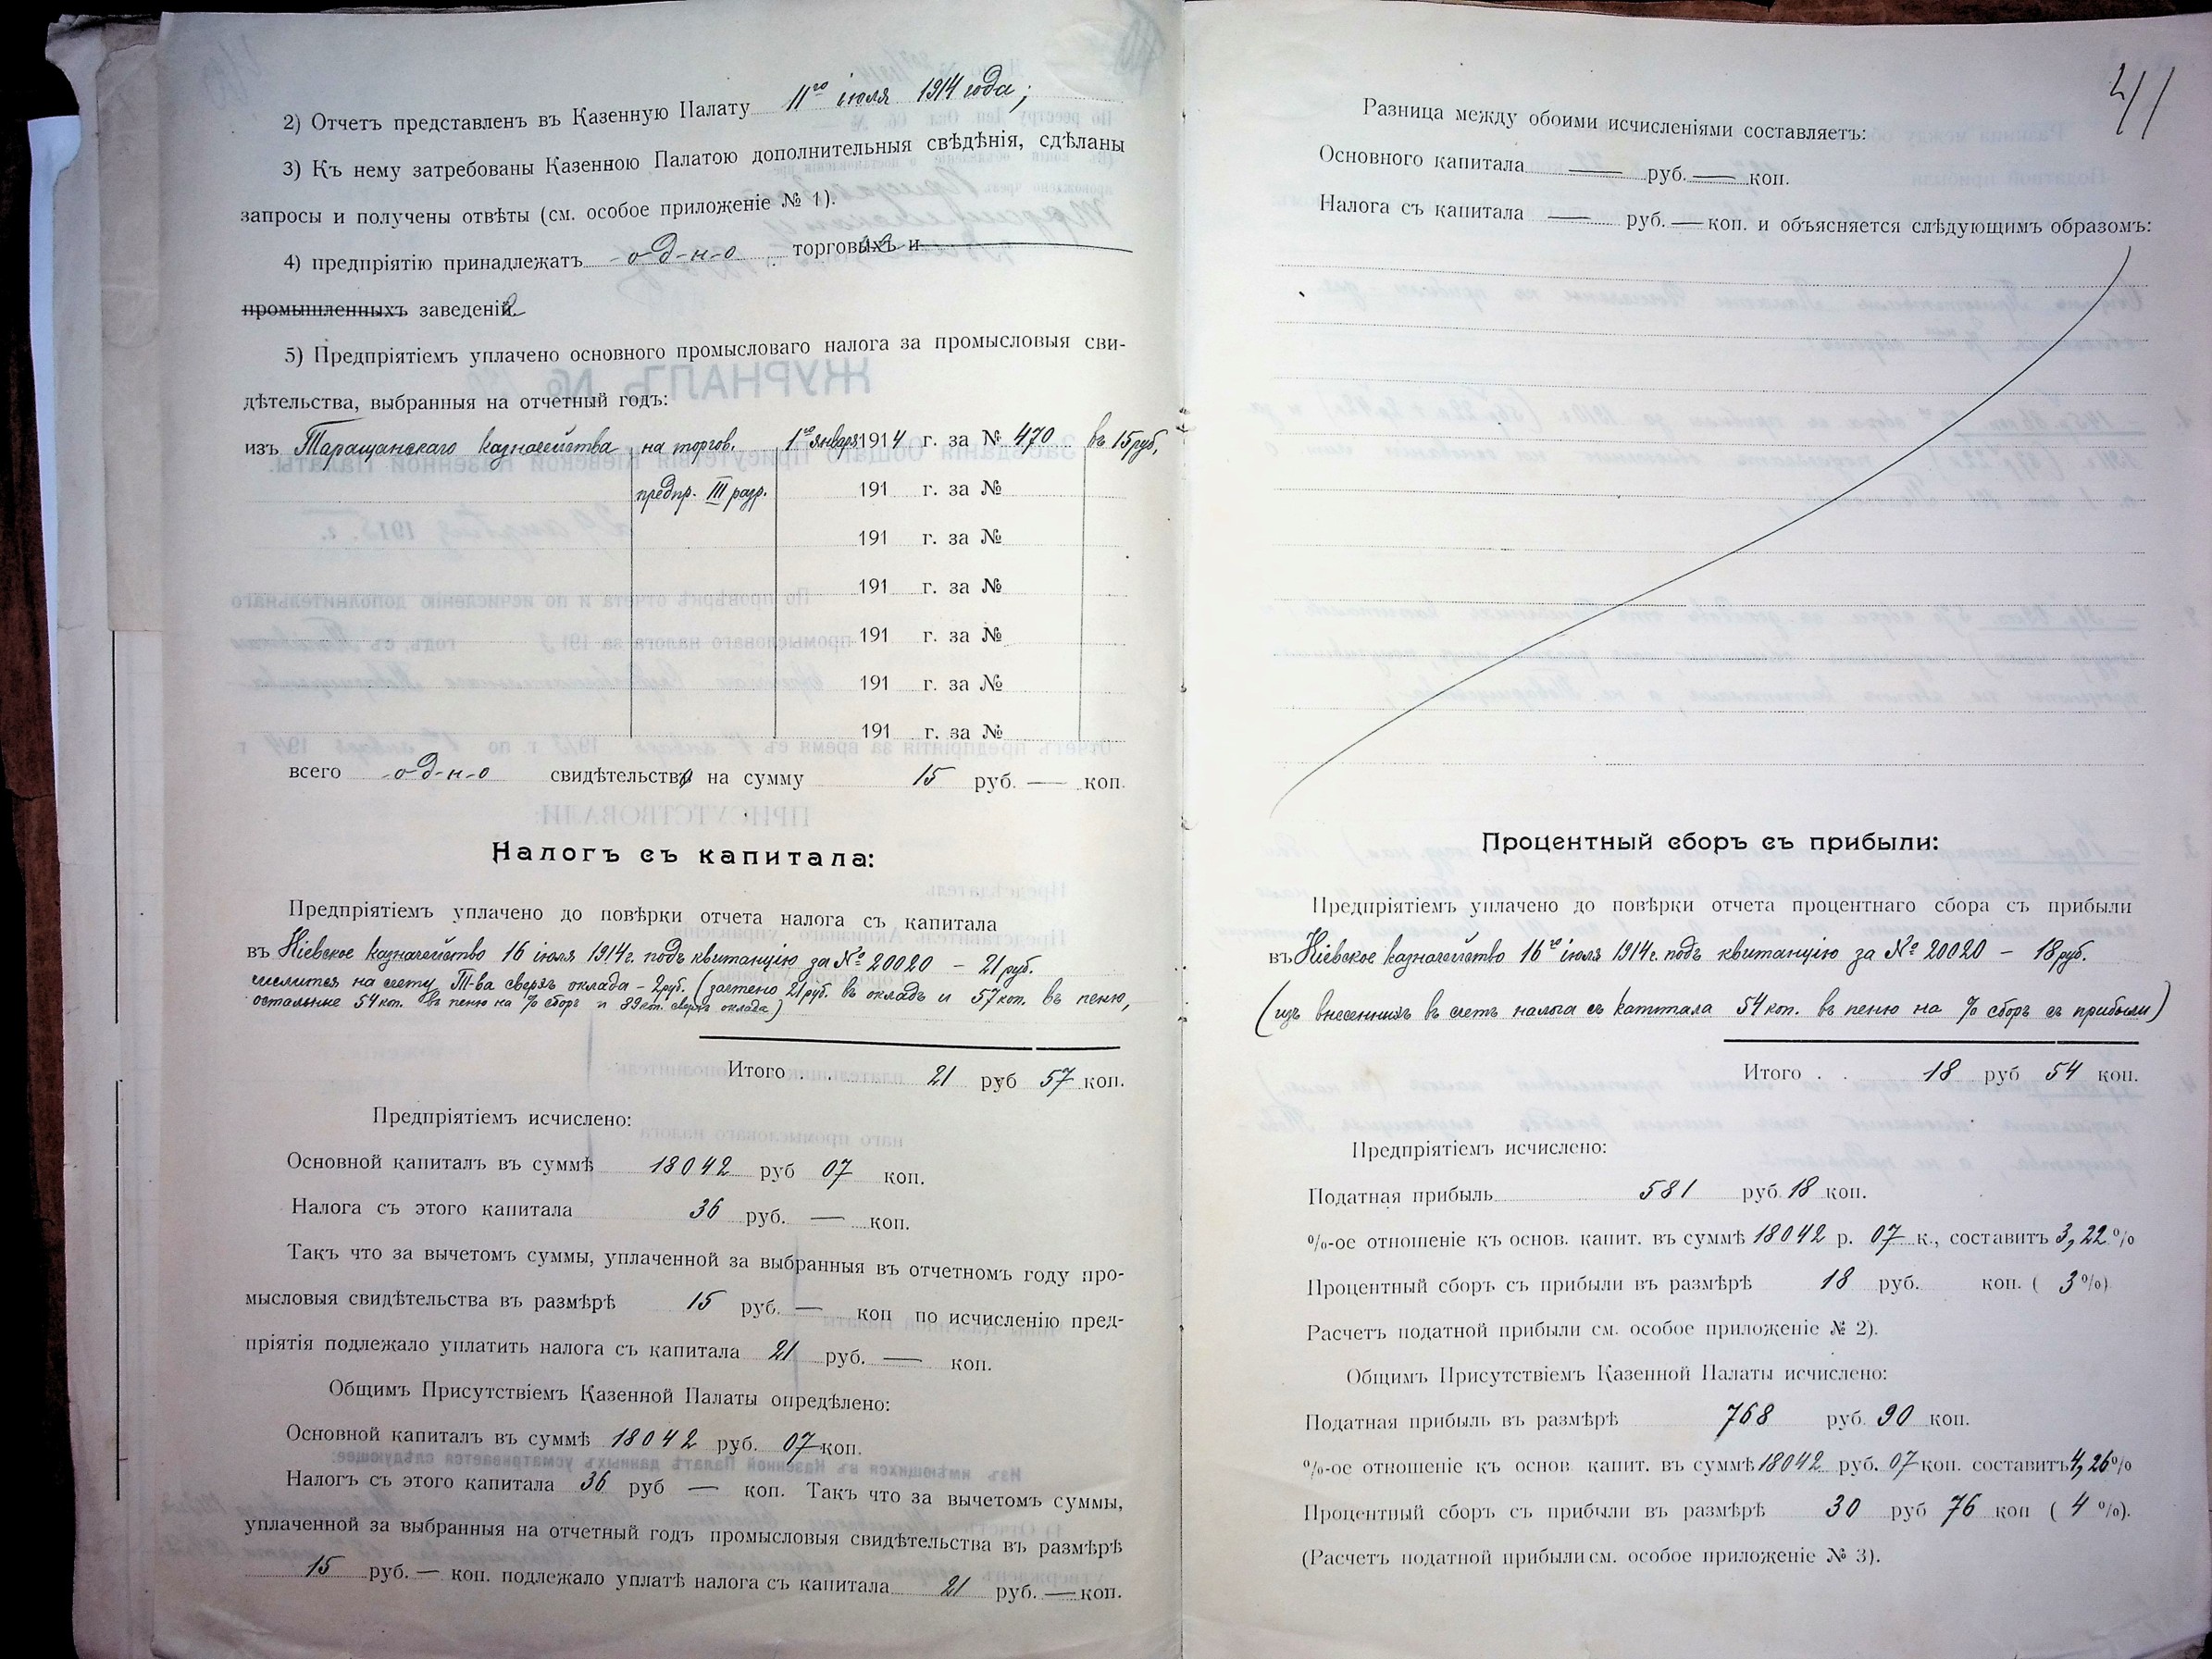 2) Отчетъ представленъ въ Казенную Палату 11го іюля 1914 года;
3) Къ нему затребованы Казенною Палатою дополнительныя свѣдѣнія, сдѣланы
запросы и получены отвѣты (см. особое приложеніе № 1).
4) предпріятію принадлежатъ -о-д-н-о торговыхъ и
промышленныхъ заведеній
5) Предпріятіемъ уплачено основного промысловаго налога за промысловыя сви-
дѣтельства, выбранныя на отчетный годъ:
изъ Таращанскаго казначейства на торгов. 1го января 1914 г. за № 470 въ 15 руб.
предпр. III разр. 191 г. за №
191 г. за №
191 г. за №
191 г. за №
191 г. за №
191 г. за №
всего -о-д-н-о свидѣтельство на сумму 15 руб. — коп.
Налогъ съ капитала:
Предпріятіемъ уплачено до повѣрки отчета налога съ капитала
въ Кіевское казначейство 16 іюля 1914 г. подъ квитанцію за № 20020 – 21 руб.
числится на счету Т-ва сверхъ оклада – 2 руб. (зачтено 21 руб. въ окладъ и 57 коп. въ пеню,
остальные 54 коп. въ пеню на % сборъ и 89 коп. сверхъ оклада)
Итого . . 21 руб 57 коп.
Предпріятіемъ исчислено:
Основной капиталъ въ суммѣ 18042 руб 07 коп.
Налога съ этого капитала 36 руб. — коп.
Такъ что за вычетомъ суммы, уплаченной за выбранныя въ отчетномъ году про-
мысловыя свидѣтельства въ размѣрѣ 15 руб. — коп по исчисленію пред-
пріятія подлежало уплатить налога съ капитала 21 руб. — коп.
Общимъ Присутствіемъ Казенной Палаты опредѣлено:
Основной капиталъ въ суммѣ 18042 руб. 07 коп.
Налогъ съ этого капитала 36 руб — коп. Такъ что за вычетомъ суммы,
уплаченной за выбранныя на отчетный годъ промысловыя свидѣтельства въ размѣрѣ
15 руб. — коп. подлежало уплатѣ налога съ капитала 21 руб. — коп.
41
Разница между обоими исчисленіями составляетъ:
Основного капитала — руб. — коп.
Налога съ капитала — руб. — коп. и объясняется слѣдующимъ образомъ:
Процентный сборъ съ прибыли:
Предпріятіемъ уплачено до повѣрки отчета процентнаго сбора съ прибыли
въ Кіевское казначейство 16го іюля 1914 г. подъ квитанцію за № 20020 – 18 руб.
(изъ внесенныхъ въ счетъ налога съ капитала 54 коп. въ пеню на % сборъ съ прибыли)
Итого . . 18 руб 54 коп.
Предпріятіемъ исчислено:
Податная прибыль 581 руб. 18 коп.
%-ое отношеніе къ основ. капит. въ суммѣ 18042 р. 07 к., составитъ 3,22 %
Процентный сборъ съ прибыли въ размѣрѣ 18 руб. коп. ( 3 %)
Расчетъ податной прибыли см. особое приложеніе № 2).
Общимъ Присутствіемъ Казенной Палаты исчислено:
Податная прибыль въ размѣрѣ 768 руб. 90 коп.
%-ое отношеніе къ основ капит. въ суммѣ 18042 руб. 07 коп. составитъ 4,26 %
Процентный сборъ съ прибыли въ размѣрѣ 30 руб 76 коп ( 4 %).
(Расчетъ податной прибыли см. особое приложеніе № 3).